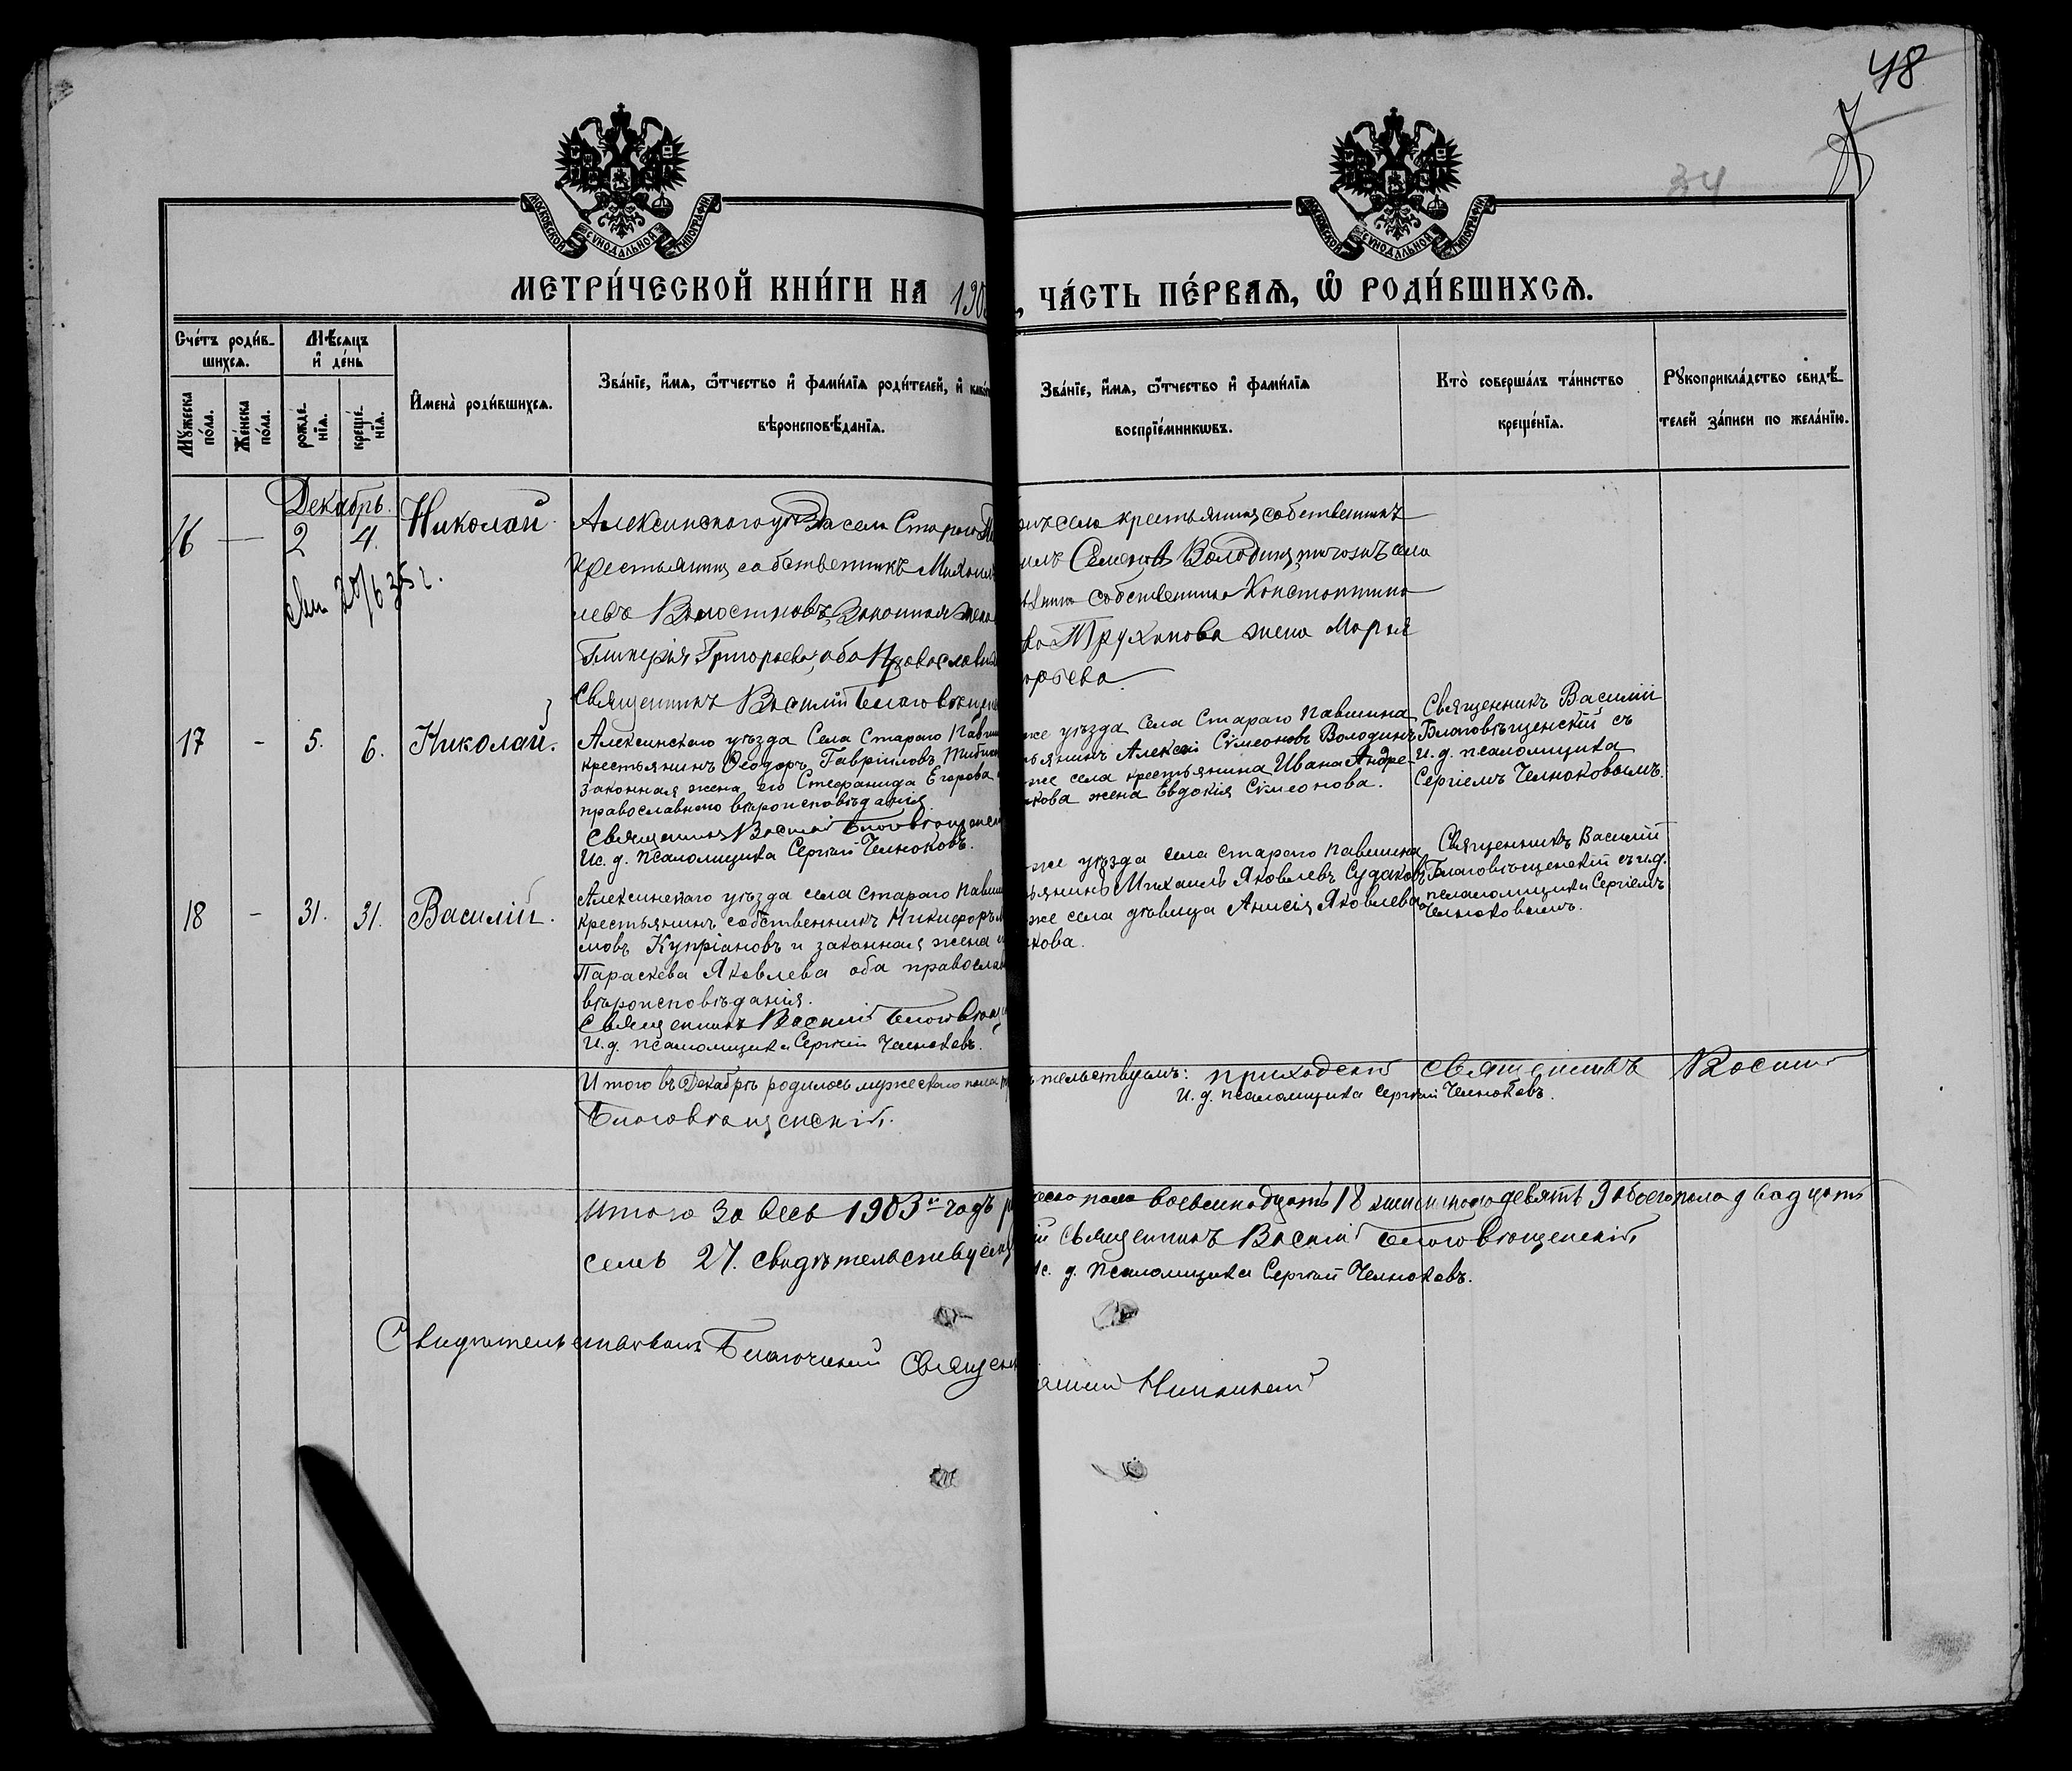 48
34
МОСКОВСКОЙ СѴНОДАЛЬНОЙ ТИПОГРАФІИ
МОСКОВСКОЙ СѴНОДАЛЬНОЙ ТИПОГРАФІИ
МЕТРИ́ЧЕСКОЙ КНИ́ГИ НА 190
, ЧА́СТЬ ПЕ́РВАѦ, Ѽ РОДИ́ВШИХСѦ.
Сче́тъ роди́в-
шихсѧ.
Мѣ́сѧцъ
и҆ де́нь
Мꙋ́жеска
по́ла.
Же́нска
по́ла.
рожде́-
нїѧ.
креще́-
нїѧ.
И҆мена̀ роди́вшихсѧ.
Зва́нїе, и҆́мѧ, ѻ҆́тчество и҆ фами́лїѧ роди́телей, и҆
вѣроисповѣ́данїѧ.
Зва́нїе, и҆́мѧ, ѻ҆́тчество и҆ фами́лїѧ
воспрїе́мникѡвъ.
Кто̀ соверша́лъ та́инство
креще́нїѧ.
Рꙋкоприкла́дство свидѣ́-
телей за́писи по жела́нїю.
Декабрь.
16 — 2 4. Николай
Алексинского уѣзда села Стараго
Крестьянинъ собственникъ Михаилъ
левъ законная жена
Гликерія Григорьева, оба Православна
Священникъ Василій Благовѣщен
села крестьянинъ собственникъ
илъ Семеновъ Володинъ, тогожъ села
собственника Константина
ва Труханова жена Марья
орьева.
20/6 35 г.
17 - 5. 6. Николай.
Алексинскаго уѣзда Села Стараго Павши
крестьянинъ Ѳеодоръ Гавріиловъ
законная жена его Стефанида Егорова
православнаго вѣроисповѣданія.
Священникъ Василій Благовѣщенск
Ис. д. псаломщика Сергѣй Челноковъ.
же уѣзда Села Стараго Павшина
ьянинъ Алексѣй Сѵмеоновъ Володинъ
же села крестьянина Ивана Андре-
кова жена Евдокія Сѵмеонова.
Священникъ Василій
Благовѣщенскій съ
и. д. псаломщика
Сергіемъ Челноковымъ.
18 - 31. 31. Василій.
Алексинскаго уѣзда села Стараго Павши
крестьянинъ собственникъ Никифоръ
мовъ Купріановъ и законная жена
Параскева Яковлева оба православ
вѣроисповѣданія.
Священникъ Василій Благовѣщ
И. д. псаломщика Сергѣй Челноковъ.
же уѣзда села стараго Павшина
ьянинъ Михаилъ Яковлевъ Судаковъ
же села дѣвица Анисія Яковлева
кова.
Священникъ Василій
Благовѣщенскій съ и.д.
псаломщика Сергіемъ
Челноковымъ.
Итого въ Декабрѣ родилось мужескаго пола
тельствуемъ: приходскій священникъ Василій
Благовѣщенскій.
И. д. псаломщика Сергѣй Челноковъ.
Итого за весь 1903й годъ
скаго пола восемнадцать 18 женскаго девять 9 обоего пола двадцать
семь 27. свидѣтельствуемъ
й священникъ Василій Благовѣщенскій,
с. д. псаломщика Сергѣй Челноковъ.
Свидѣтельствовалъ Благочинный Священ